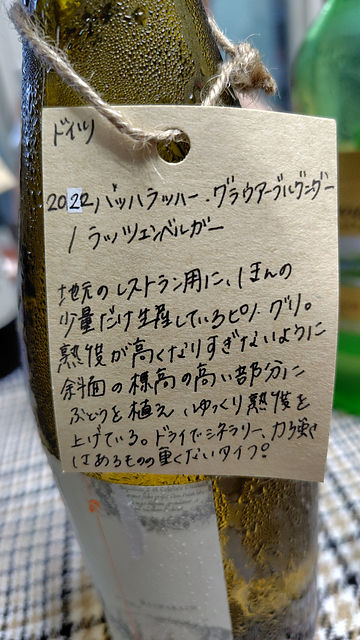 ドイツ
2022 バッハラッハー・グラウアーブルグンダー
/ ラッツェンベルガー
地元のレストラン用に、ほんの
少量だけ生産しているピノ・グリ。
熟度が高くなりすぎないように
斜面の標高の高い部分に
ぶどうを植え、ゆっくり熟度を
上げている。ドライでミネラリー、力強さ
はあるものの重くないタイプ。
BACHARACH